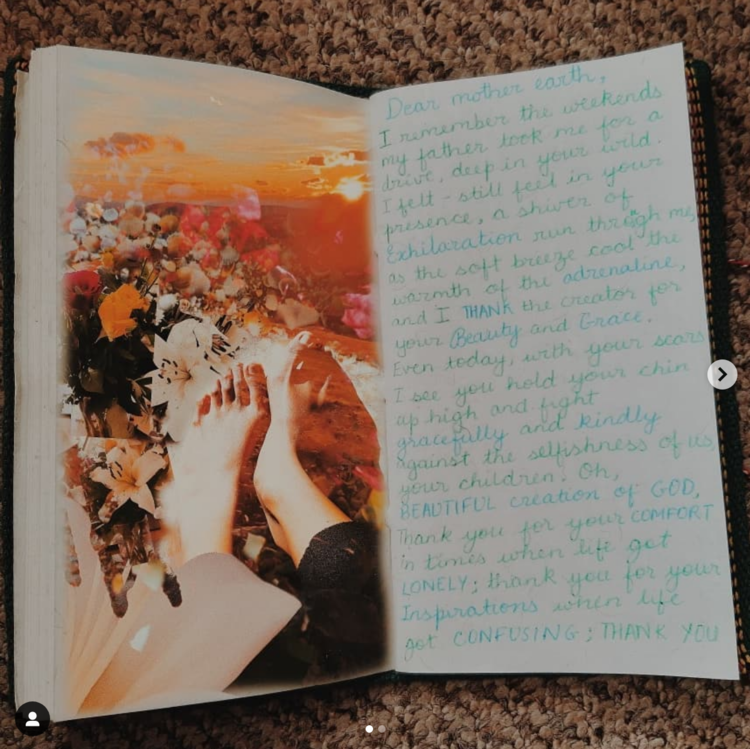 Dear mother earth,
I remember the weekends
my father took me for a
drive, deep in your wild.
I felt - still feel in your
presence, a shiver of
Exhilaration run through me,
as the soft breeze cool the
warmth of the adrenaline,
and I THANK the creator for
your Beauty and Grace.
Even today, with your scars
I see you hold your chin
up high and fight
gracefully and kindly
against the selfishness of us,
your children. Oh,
BEAUTIFUL creation of GOD,
Thank you for your COMFORT
in times when life got
LONELY; thank you for your
Inspirations when life
got CONFUSING; THANK YOU